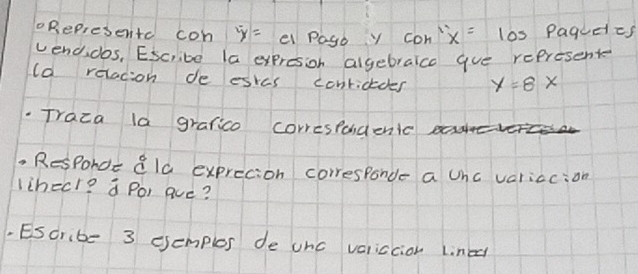 °Represento con "y"= el Pago y con "x"= los Paquetes
vendidos, Escribe la expresion algebraica que represente
la relacion de estas contidades y=8x
· Traza la grafico correspondiente
· Responde ¿la exprecion corresponde a una variacion
lineal? ¿Por que?
· Escribe 3 esemplos de una variccion lineal